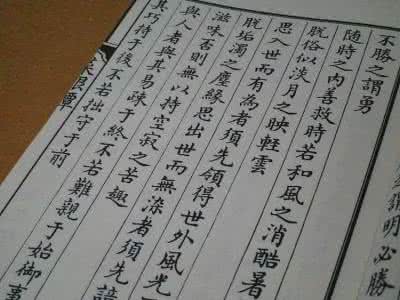 明必勝
不勝之謂勇
随時之内善救時若和風之消酷暑
脱俗似淡月之映軽雲
思入世而有為者須先領得世外風光
脱垢濁之塵緣思出世而無染者須先諳
滋味否則無以持空寂之苦趣
與人者與其易疎于終不若難親于始御事
其巧持于後不若拙守于前
菜根譚